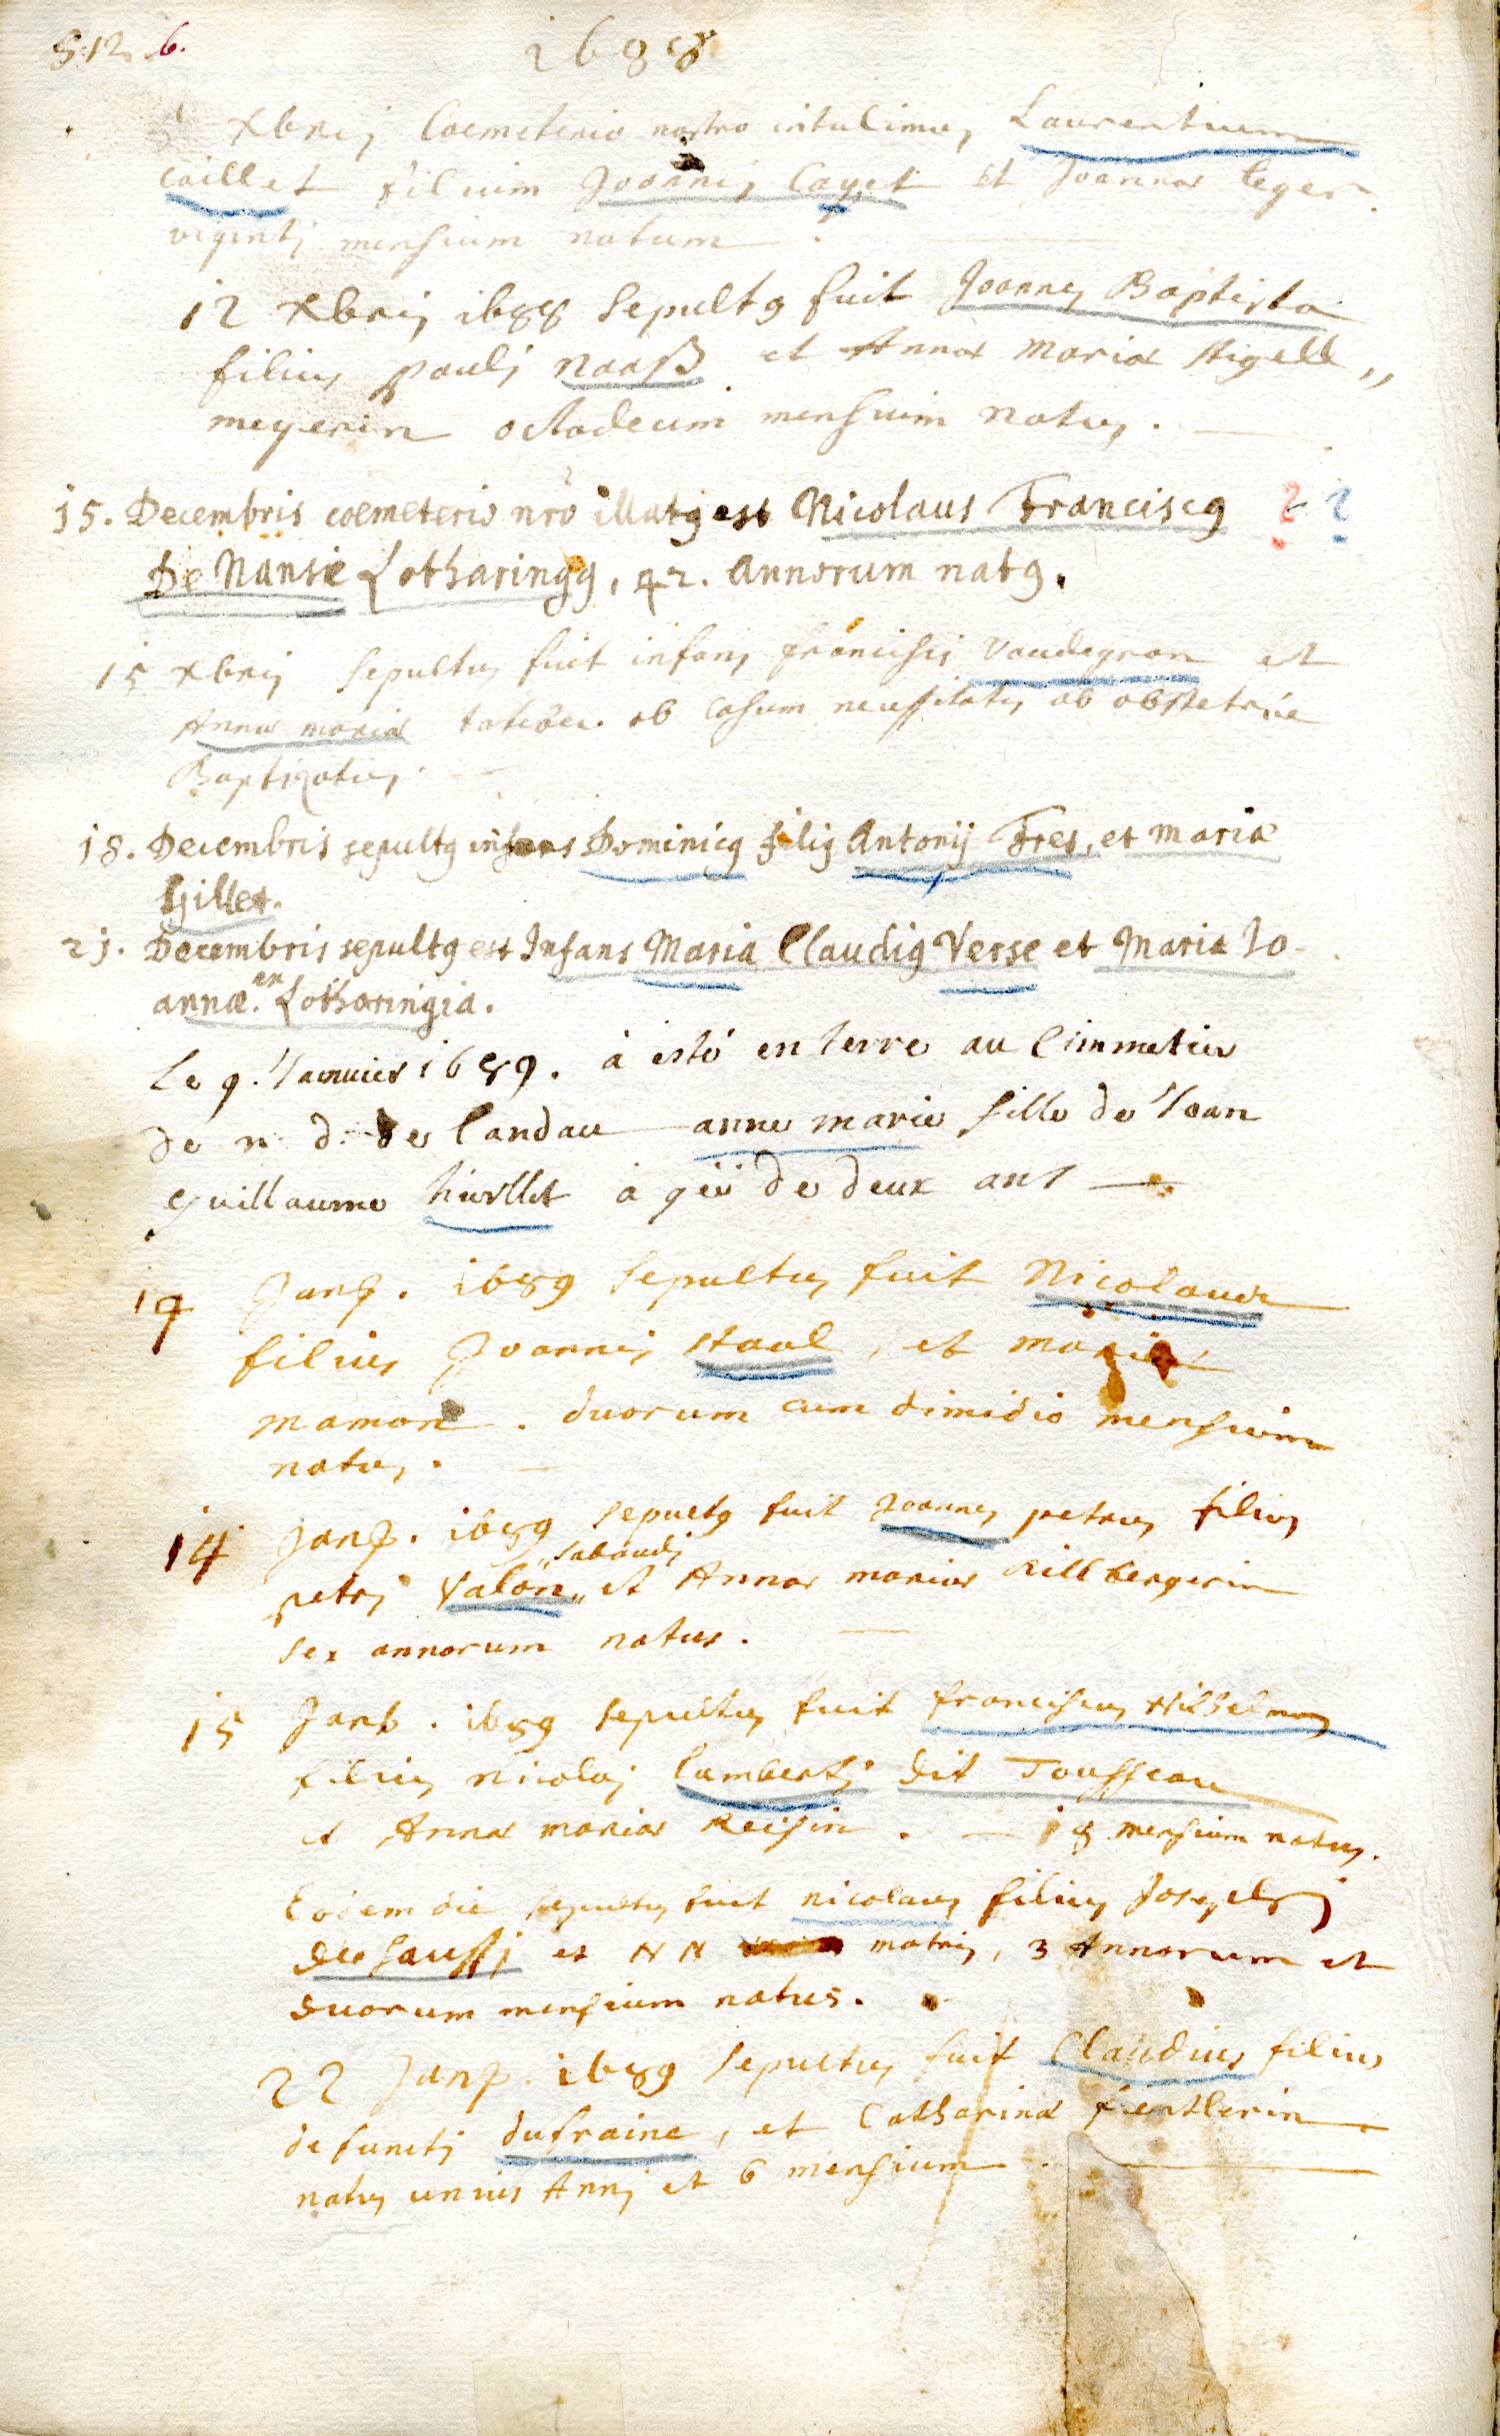 512 b.
1688
5 xbris Coemeterio nostro intulimus Laurentium
caillet filium Joannis Cayet et Joannæ leger
viginti mensium natum.
12 xbris 1688 sepultus fuit Joannes Baptista
filius pauli naaß et Annæ Mariæ Stigell„
meyerin octodecim mensium natus.
15. Decembris coemeterio nro illatus est Nicolaus Franciscus ? ?
De Nansie Lotharingus, 42. Annorum natus.
15 xbris sepultus fuit infans francisci Vaudegran et
Annæ mariæ ob casum necessitatis ab obstetrice
Baptizatus.
18. Decembris sepultus infans Dominicus filius Antonij Fres, et Mariæ
Hillet.
21. Decembris sepultus est Infans Maria Claudius Verse et Mariæ Jo-
annæ. ex Lotharingia.
Le 9. Januier 1689. à esté en terre au Cimmetier
de n. d. de Landau anne marie fille de Jean
guillaume hiurllet à géé de deux ans
19 Janr. 1689 sepultus fuit Nicolaus
filius Joannis Staal, et mariæ
mamon. duorum cum dimidio mensium
natus.
14 Janr. 1689 sepultus fuit Joannes petrus filius
petri Valon „Sabaudi„ et Annæ mariæ Killbergerin
sex annorum natus.
15 Janr. 1689 sepultus fuit franciscus Wilhelmus
filius nicolai Lamberti dit Tousseau
et Annæ mariæ Reisin. 18 mensium natus.
Eodem die sepultus fuit nicolaus filius Josephi
deosaussi et NN matris, 3 Annorum et
duorum mensium natus.
22 Janr. 1689 sepultus fuit Claudius filius
defuncti dufraine, et Catharinæ fentlerin
natus unius Anni et 6 mensium.